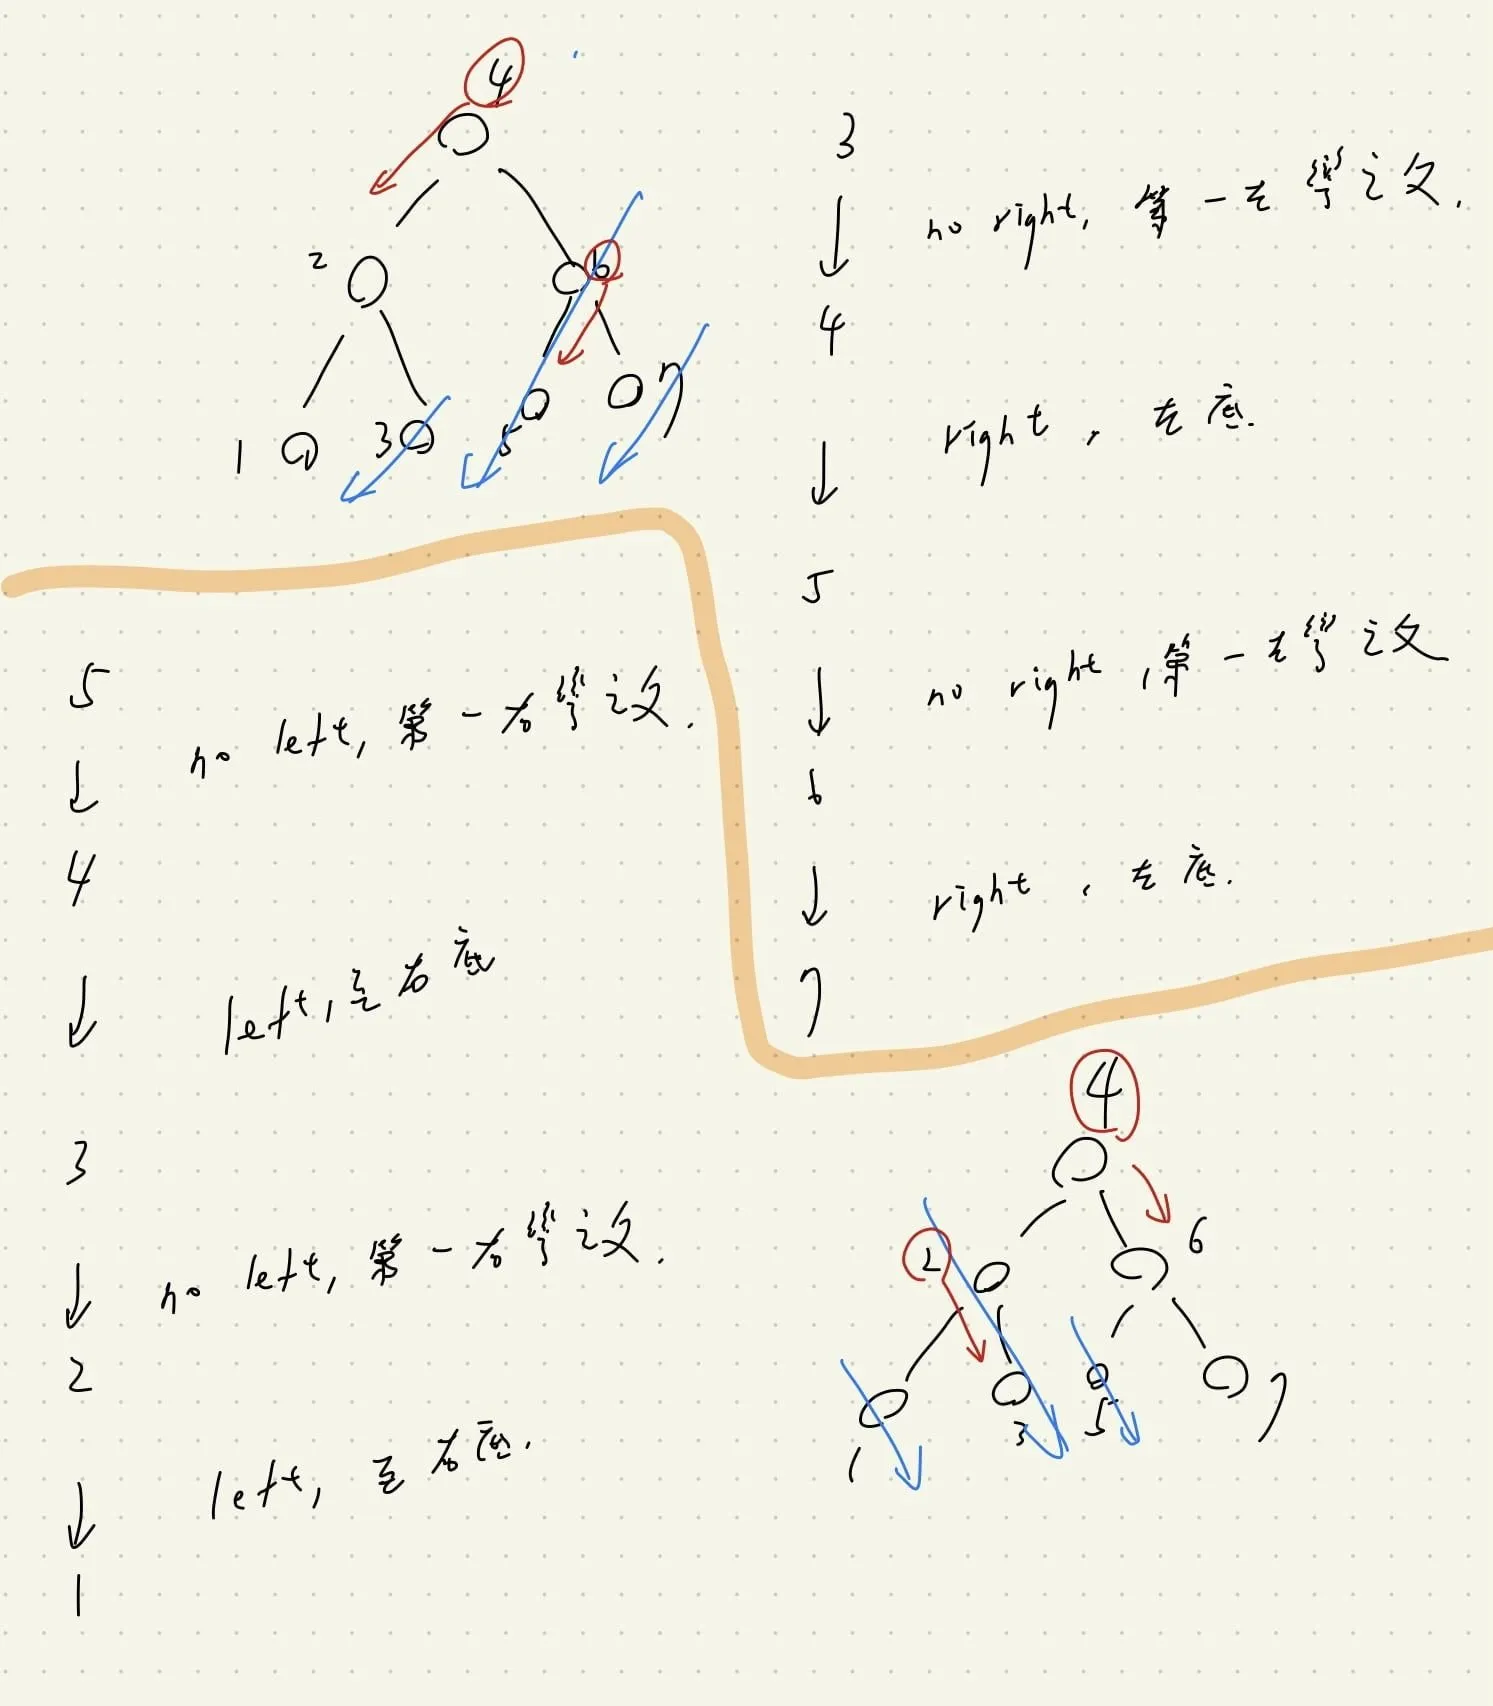 4
2
6
1 3 5 7
3
no right, 第一左孿之父.
4
right, 左底.
5
no right, 第一左孿之父
6
right, 左底.
7
5
no left, 第一右孿之父.
4
left, 至右底
3
no left, 第一右孿之父.
2
left, 至右底.
1
4
2 6
1 3 5 7